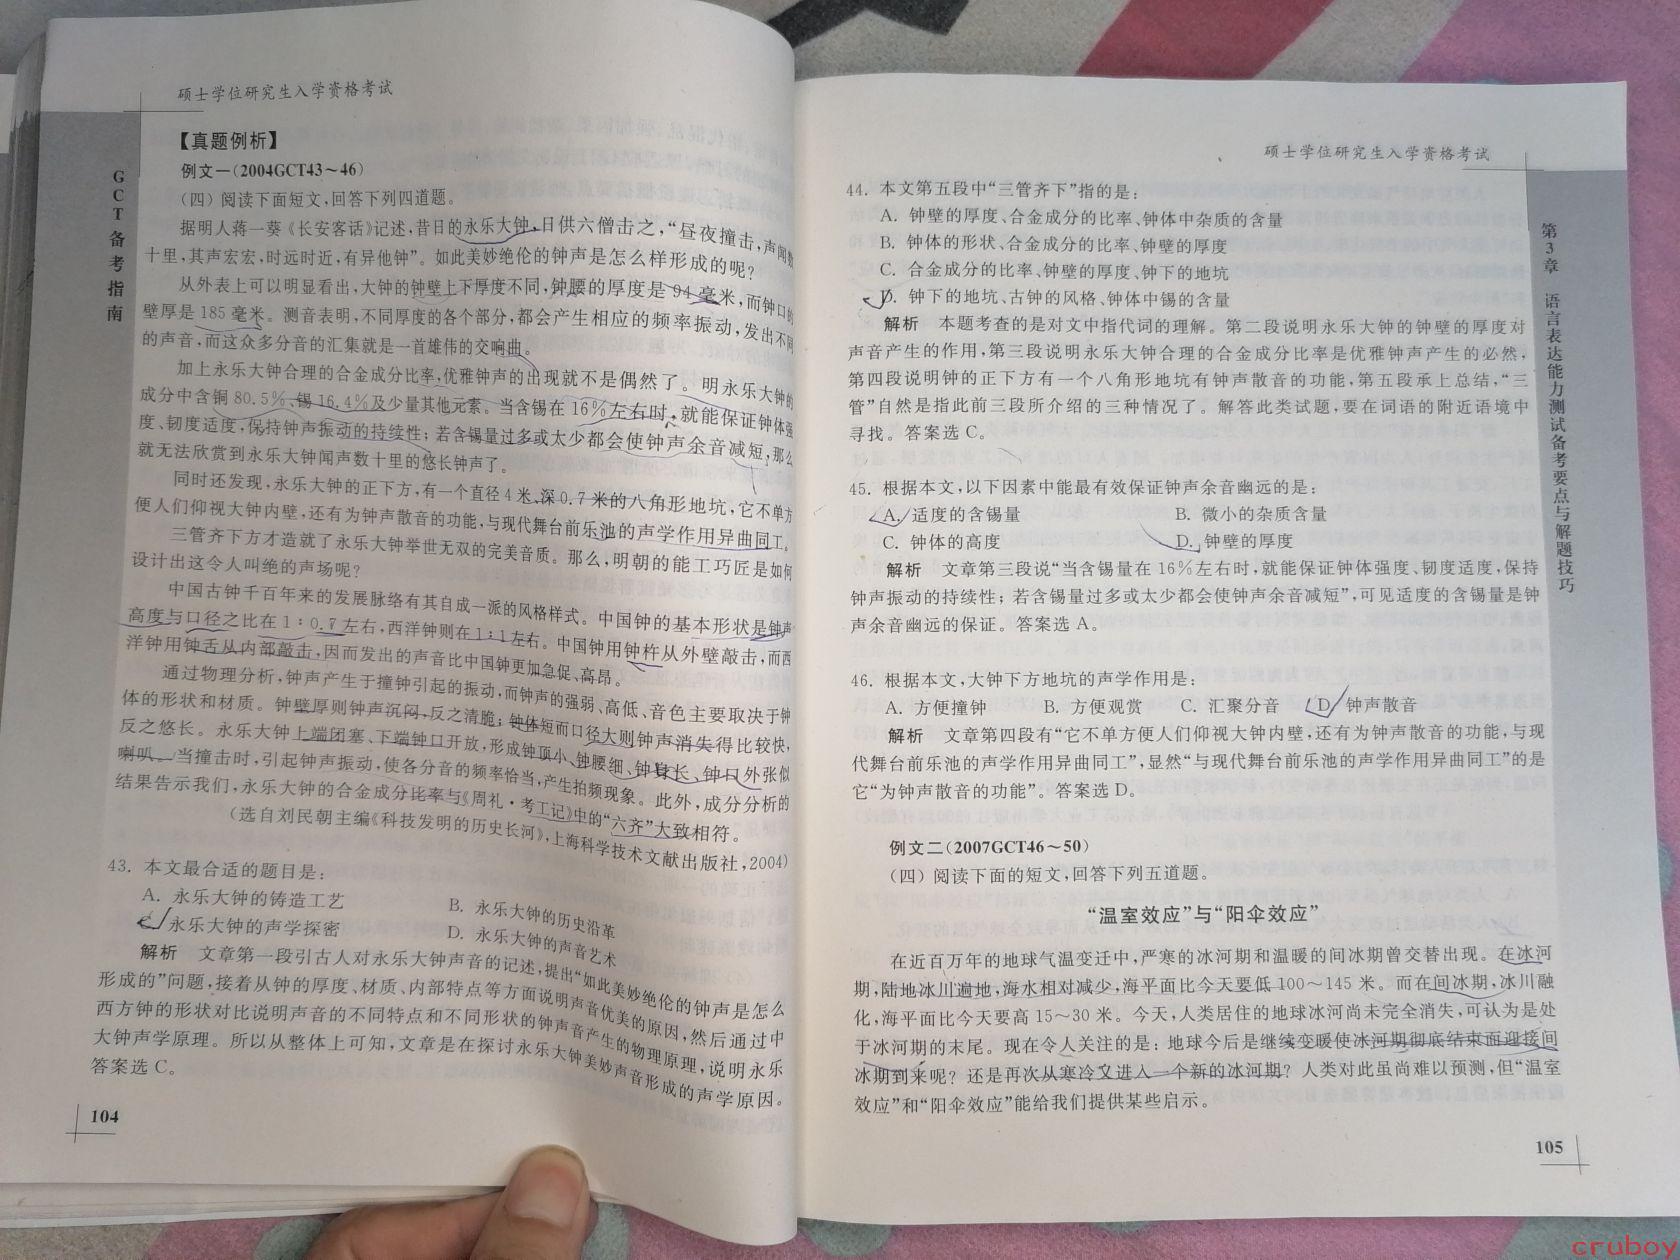 硕士学位研究生入学资格考试
GCT备考指南
【真题例析】
例文一(2004GCT43～46)
(四) 阅读下面短文,回答下列四道题。
据明人蒋一葵《长安客话》记述,昔日的永乐大钟,日供六僧击之,“昼夜撞击,声闻数
十里,其声宏宏,时远时近,有异他钟”。如此美妙绝伦的钟声是怎么样形成的呢?
从外表上可以明显看出,大钟的钟壁上下厚度不同,钟腰的厚度是94毫米,而钟口的
壁厚是185毫米。测音表明,不同厚度的各个部分,都会产生相应的频率振动,发出不同
的声音,而这众多分音的汇集就是一首雄伟的交响曲。
加上永乐大钟合理的合金成分比率,优雅钟声的出现就不是偶然了。明永乐大钟的
成分中含铜80.5%、锡16.4%及少量其他元素。当含锡在16%左右时,就能保证钟体强
度、韧度适度,保持钟声振动的持续性;若含锡量过多或太少都会使钟声余音减短,那么
就无法欣赏到永乐大钟闻声数十里的悠长钟声了。
同时还发现,永乐大钟的正下方,有一个直径4米、深0.7米的八角形地坑,它不单方
便人们仰视大钟内壁,还有为钟声散音的功能,与现代舞台前乐池的声学作用异曲同工。
三管齐下方才造就了永乐大钟举世无双的完美音质。那么,明朝的能工巧匠是如何
设计出这令人叫绝的声场呢?
中国古钟千百年来的发展脉络有其自成一派的风格样式。中国钟的基本形状是钟声
高度与口径之比在1∶0.7左右,西洋钟则在1∶1左右。中国钟用钟杵从外壁敲击,而西
洋钟用钟舌从内部敲击,因而发出的声音比中国钟更加急促、高昂。
通过物理分析,钟声产生于撞钟引起的振动,而钟声的强弱、高低、音色主要取决于钟
体的形状和材质。钟壁厚则钟声沉闷,反之清脆;钟体短而口径大则钟声消失得比较快,
反之悠长。永乐大钟上端闭塞、下端钟口开放,形成钟顶小、钟腰细、钟身长、钟口外张似
喇叭。当撞击时,引起钟声振动,使各分音的频率恰当,产生拍频现象。此外,成分分析的
结果告示我们,永乐大钟的合金成分比率与《周礼·考工记》中的“六齐”大致相符。
(选自刘民朝主编《科技发明的历史长河》,上海科学技术文献出版社,2004)
43. 本文最合适的题目是:
A. 永乐大钟的铸造工艺 B. 永乐大钟的历史沿革
永乐大钟的声学探密 D. 永乐大钟的声音艺术
解析 文章第一段引古人对永乐大钟声音的记述,提出“如此美妙绝伦的钟声是怎么
形成的”问题,接着从钟的厚度、材质、内部特点等方面说明声音优美的原因,然后通过中
西方钟的形状对比说明声音的不同特点和不同形状的钟声音产生的物理原理,说明永乐
大钟声学原理。所以从整体上可知,文章是在探讨永乐大钟美妙声音形成的声学原因。
答案选C。
104
硕士学位研究生入学资格考试
第3章 语言表达能力测试备考要点与解题技巧
44. 本文第五段中“三管齐下”指的是:
A. 钟壁的厚度、合金成分的比率、钟体中杂质的含量
B. 钟体的形状、合金成分的比率、钟壁的厚度
C. 合金成分的比率、钟壁的厚度、钟下的地坑
D. 钟下的地坑、古钟的风格、钟体中锡的含量
解析 本题考查的是对文中指代词的理解。第二段说明永乐大钟的钟壁的厚度对
声音产生的作用,第三段说明永乐大钟合理的合金成分比率是优雅钟声产生的必然,
第四段说明钟的正下方有一个八角形地坑有钟声散音的功能,第五段承上总结,“三
管”自然是指此前三段所介绍的三种情况了。解答此类试题,要在词语的附近语境中
寻找。答案选C。
45. 根据本文,以下因素中能最有效保证钟声余音幽远的是:
A. 适度的含锡量 B. 微小的杂质含量
C. 钟体的高度 D. 钟壁的厚度
解析 文章第三段说“当含锡量在16%左右时,就能保证钟体强度、韧度适度,保持
钟声振动的持续性;若含锡量过多或太少都会使钟声余音减短”,可见适度的含锡量是钟
声余音幽远的保证。答案选A。
46. 根据本文,大钟下方地坑的声学作用是:
A. 方便撞钟 B. 方便观赏 C. 汇聚分音 D. 钟声散音
解析 文章第四段有“它不单方便人们仰视大钟内壁,还有为钟声散音的功能,与现
代舞台前乐池的声学作用异曲同工”,显然“与现代舞台前乐池的声学作用异曲同工”的是
它“为钟声散音的功能”。答案选D。
例文二(2007GCT46～50)
(四) 阅读下面的短文,回答下列五道题。
“温室效应”与“阳伞效应”
在近百万年的地球气温变迁中,严寒的冰河期和温暖的间冰期曾交替出现。在冰河
期,陆地冰川遍地,海水相对减少,海平面比今天要低100～145米。而在间冰期,冰川融
化,海平面比今天要高15～30米。今天,人类居住的地球冰河尚未完全消失,可认为是处
于冰河期的末尾。现在令人关注的是:地球今后是继续变暖使冰河期彻底结束面迎接间
冰期到来呢?还是再次从寒冷又进入一个新的冰河期?人类对此虽尚难以预测,但“温室
效应”和“阳伞效应”能给我们提供某些启示。
105
cruboy